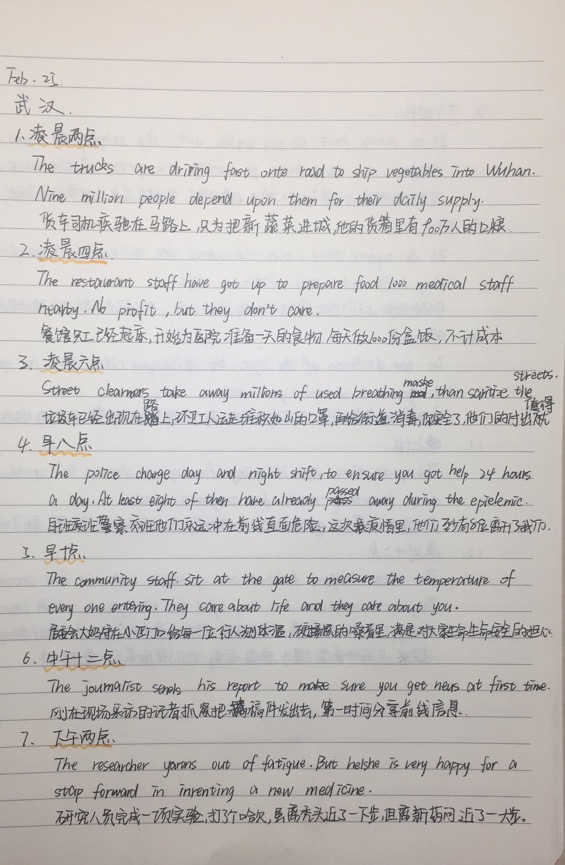 Feb. 25
武汉.
1. 凌晨两点.
The trucks are driving fast onte road to ship vegetables into Wuhan.
Nine million people depend upon them for their daily supply.
货车司机疾驰在马路上,只为把新蔬菜进城,他的货箱里有900万人的口粮
2. 凌晨四点.
The restaurant staff have got up to prepare food 1000 medical staff
nearby. No profit, but they don't care.
餐馆员工已经起床,开始为医院准备一天的食物 每天做1000份盒饭,不计成本
3. 凌晨六点
Street cleanners take away millions of used breathing maske, than sanitize the streets.
垃圾车已经出现在路上,环卫工人运走堆积如山的口罩,再给街道消毒,安全了,他们的付出就值得
4. 早八点
The police change day and night shift, to ensure you got help 24 hours
a day. At least eight of then have already passed away during the epielemic.
白班夜班警察交班他们永远冲在前线直面危险,这次疫情里,他们至少有8位离开了我们.
5. 早十点.
The community staff sit at the gate to measure the temperature of
every one entering. They care about life and they care about you.
居委会大妈守在小区门口给每一位行人测体温,的嗓音里,满是对大家生命安全的担心
6. 中午十二点.
The journalist sends his report to make sure you get news at first time.
刚在现场采访的记者抓紧把稿件发出去,第一时间分享前线信息.
7. 下午两点.
The researcher yarans out of fatigue. But helshe is very happy for a
stap forward in inrenting a new medicine.
研究人员完成一项实验,打了个哈欠,虽离秃头近了一下步,但离新药问近了一大步。